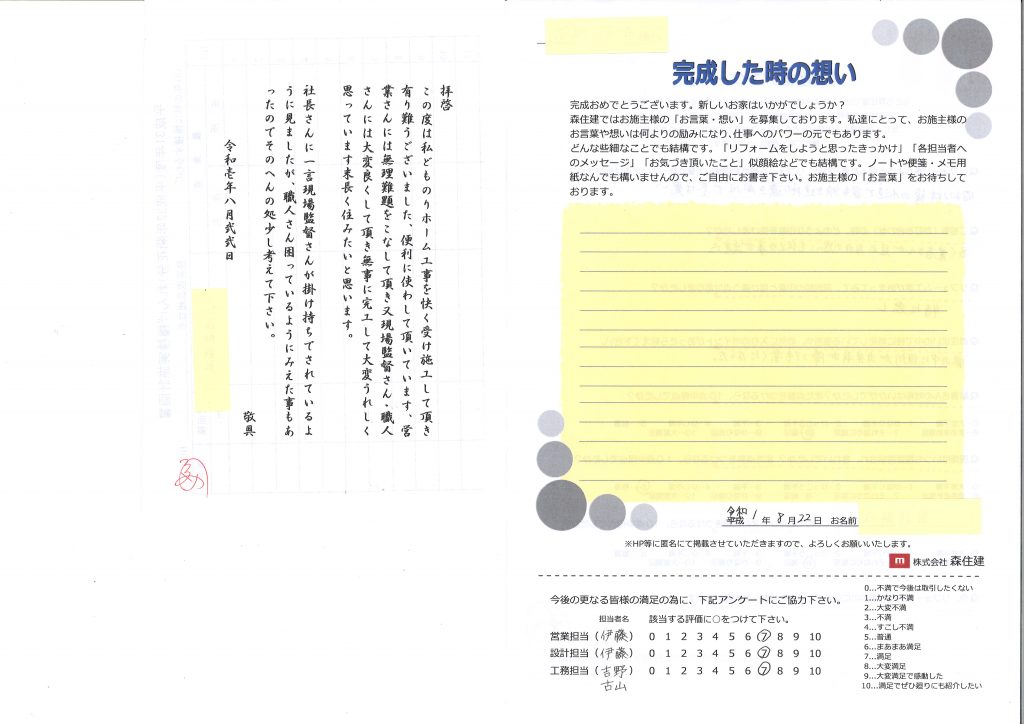 拝啓
この度は私どものリホーム工事を快く受け施工して頂き
有り難うございました、便利に使わして頂いています、営
業さんには無理難題をこなして頂き又現場監督さん・職人
さんには大変良くして頂き無事に完工して大変うれしく
思っています末長く住みたいと思います。
社長さんに一言現場監督さんが掛け持ちでされているよ
うに見ましたが、職人さん困っているようにみえた事もあ
ったのでそのへんの処少し考えて下さい。
敬具
令和壱年八月弐弐日
完成した時の想い
完成おめでとうございます。新しいお家はいかがでしょうか？
森住建ではお施主様の「お言葉・想い」を募集しております。私達にとって、お施主様の
お言葉や想いは何よりの励みになり、仕事へのパワーの元でもあります。
どんな些細なことでも結構です。「リフォームをしようと思ったきっかけ」「各担当者へ
のメッセージ」「お気づき頂いたこと」似顔絵などでも結構です。ノートや便箋・メモ用
紙なんでも構いませんので、ご自由にお書き下さい。お施主様の「お言葉」をお待ちして
おります。
令和
平成 1 年 8 月 22 日 お名前
※HP等に匿名にて掲載させていただきますので、よろしくお願いいたします。
m 株式会社 森住建
今後の更なる皆様の満足の為に、下記アンケートにご協力下さい。
担当者名 該当する評価に○をつけて下さい。
営業担当（伊藤） 0 1 2 3 4 5 6 7 8 9 10
設計担当（伊藤） 0 1 2 3 4 5 6 7 8 9 10
工務担当（吉野） 0 1 2 3 4 5 6 7 8 9 10
古山
0…不満で今後は取引したくない
1…かなり不満
2…大変不満
3…不満
4…すこし不満
5…普通
6…まあまあ満足
7…満足
8…大変満足
9…大変満足で感動した
10…満足でぜひ廻りにも紹介したい